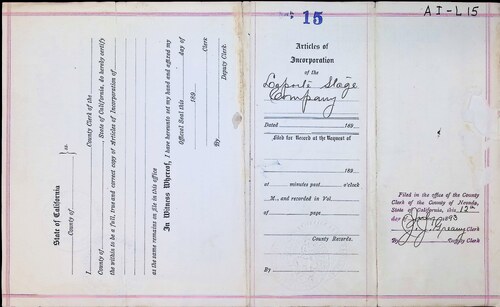 State of California
County of
} ss.
I County Clerk of the
County of , State of California, do hereby certify
the within to be a full, true and correct copy of Articles of Incorporation of
as the same remains on file in this office
In Witness Whereof, I have hereunto set my hand and affixed my
Official Seal this day of
189
Clerk
By
Deputy Clerk.
15
Articles of
Incorporation
of the
Laporte Stage
Company
Dated 189
Filed for Record at the Request of
189
at minutes past o'clock
M., and recorded in Vol.
of page
County Records.
By
AI-L15
Filed in the office of the County
Clerk of the County of Nevada,
State of California, this 12th
day 1893
Clerk
By Deputy Clerk